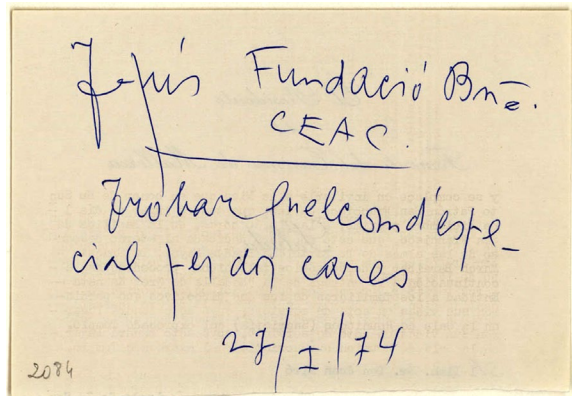 Tapís Fundació Bnē.
CEAC.
Trobar quelcom d'espe-
cial per dos cares
27/I/74
2084